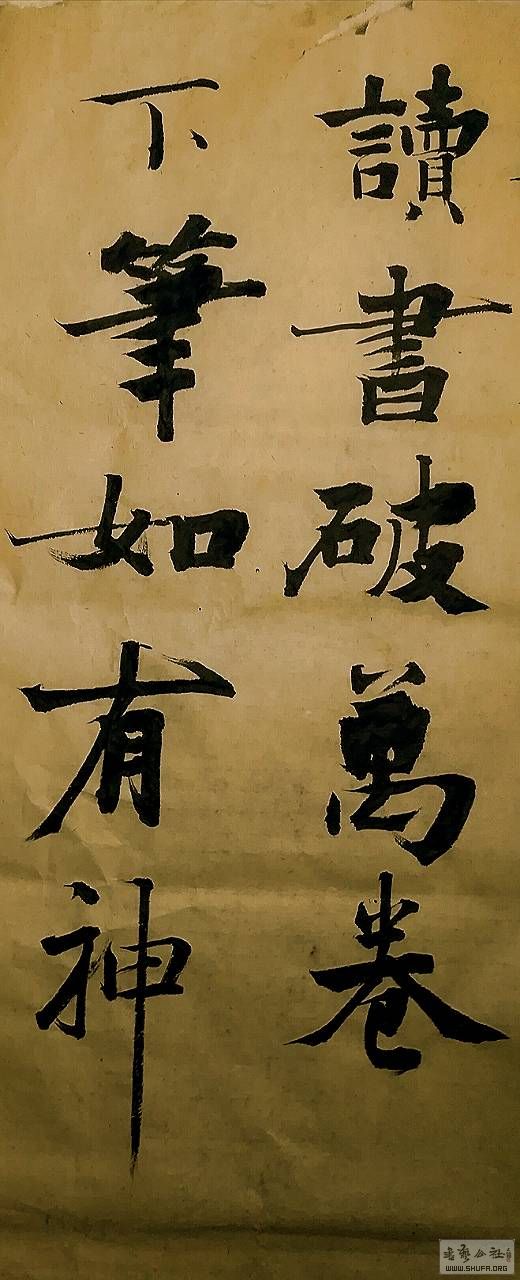 讀書破萬卷
下筆如有神
WWW.SHUFA.ORG